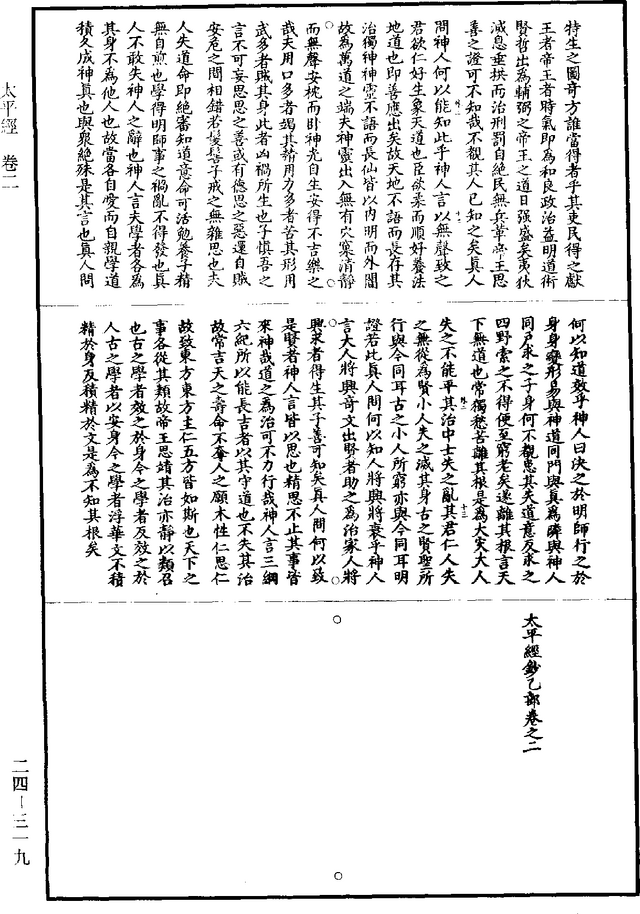 特生之圖奇方誰當得者乎其吏民得之獻
王者帝王者時氣即為和良政治益明道術
賢哲出為輔弼之帝王之道日强盛矣夷狄
減息垂拱而治刑罰自絕民無兵革帝王思
善之證可不知哉不觀其人已知之矣真人
問神人何以能知此乎神人言以無聲致之
君欲仁好生象天道也臣欲柔而順好養法
地道也即善應出矣故天地不語而長存其
治獨神神靈不語而長仙皆以内明而外闇
故為萬道之端夫神靈出入無有穴窠清靜
而無聲安枕而卧神光自生安得不吉樂之
哉夫用口多者竭其精用力多者苦其形用
武多者賊其身此者凶禍所生也子慎吾之
言不可妄思思之善或有德思之惡還自賊
安危之間相錯若髮髻子戒之無雜思也夫
人失道命即絕審知道意命可活勉養子精
無自煎也學得明師事之禍亂不得發也真
人不敢失神人之辭也神人言夫學者各為
其身不為他人也故當各自愛而自親學道
積久成神真也與衆絕殊是其言也真人問
何以知道效乎神人曰決之於明師行之於
身身變形易與神道同門與真為隣與神人
同户求之子身何不觀患其失道意反求之
四野索之不得便至窮老矣遂離其根言天
下無道也常獨愁苦離其根是為大灾大人
失之不能平其治中士失之亂其君仁人失
之無從為賢小人失之滅其身古之賢聖所
行與今同耳古之小人所窮亦與今同耳明
證若此真人問何以知人將興將衰乎神人
言大人將興奇文出賢者助之為治家人將
興求者得生其子善可知矣真人問何以致
是賢者神人言皆以思也精思不止其事皆
來神哉道之為治可不力行哉神人言三綱
六紀所以能長吉者以其守道也不失其治
故常吉天之壽命不奪人之願木性仁思仁
故致東方東方主仁五方皆如斯也天下之
事各從其類故帝王思靖其治亦靜以類召
也古之學者效之於身今之學者反效之於
人古之學者以安身今之學者浮華文不積
精於身反積精於文是為不知其根矣
太平經鈔乙部卷之二
太平經 卷二
二四-三一九